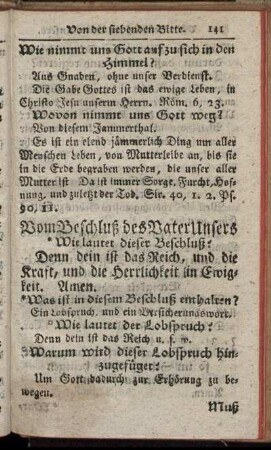 Von der siebenden Bitte. 141
Wie nimmt uns Gott auf zu sich in den
Himmel?
Aus Gnaden, ohne unser Verdienst.
Die Gabe Gottes ist das ewige Leben, in
Christo Jesu unserm Herrn. Röm. 6, 23.
Wovon nimmt uns Gott weg?
Von diesem Jammerthal.
Es ist ein elend jämmerlich Ding um aller
Menschen Leben, von Mutterleibe an, bis sie
in die Erde begraben werden, die unser aller
Mutter ist Da ist immer Sorge, Furcht, Hof-
nung, und zuletzt der Tod, Sir. 40, 1. 2. Ps.
90, 11.
Vom Beschluß des Vater Unsers
* Wie lautet dieser Beschluß?
Denn dein ist das Reich, und die
Kraft, und die Herrlichkeit in Ewig-
keit. Amen.
* Was ist in diesem Beschluß enthalten?
Ein Lobspruch, und ein Versicherungswort.
* Wie lautet der Lobspruch?
Denn dein ist das Reich u. s. w.
Warum wird dieser Lobspruch hin-
zugefüget?
Um Gott dadurch zur Erhörung zu be-
wegen.
Muß